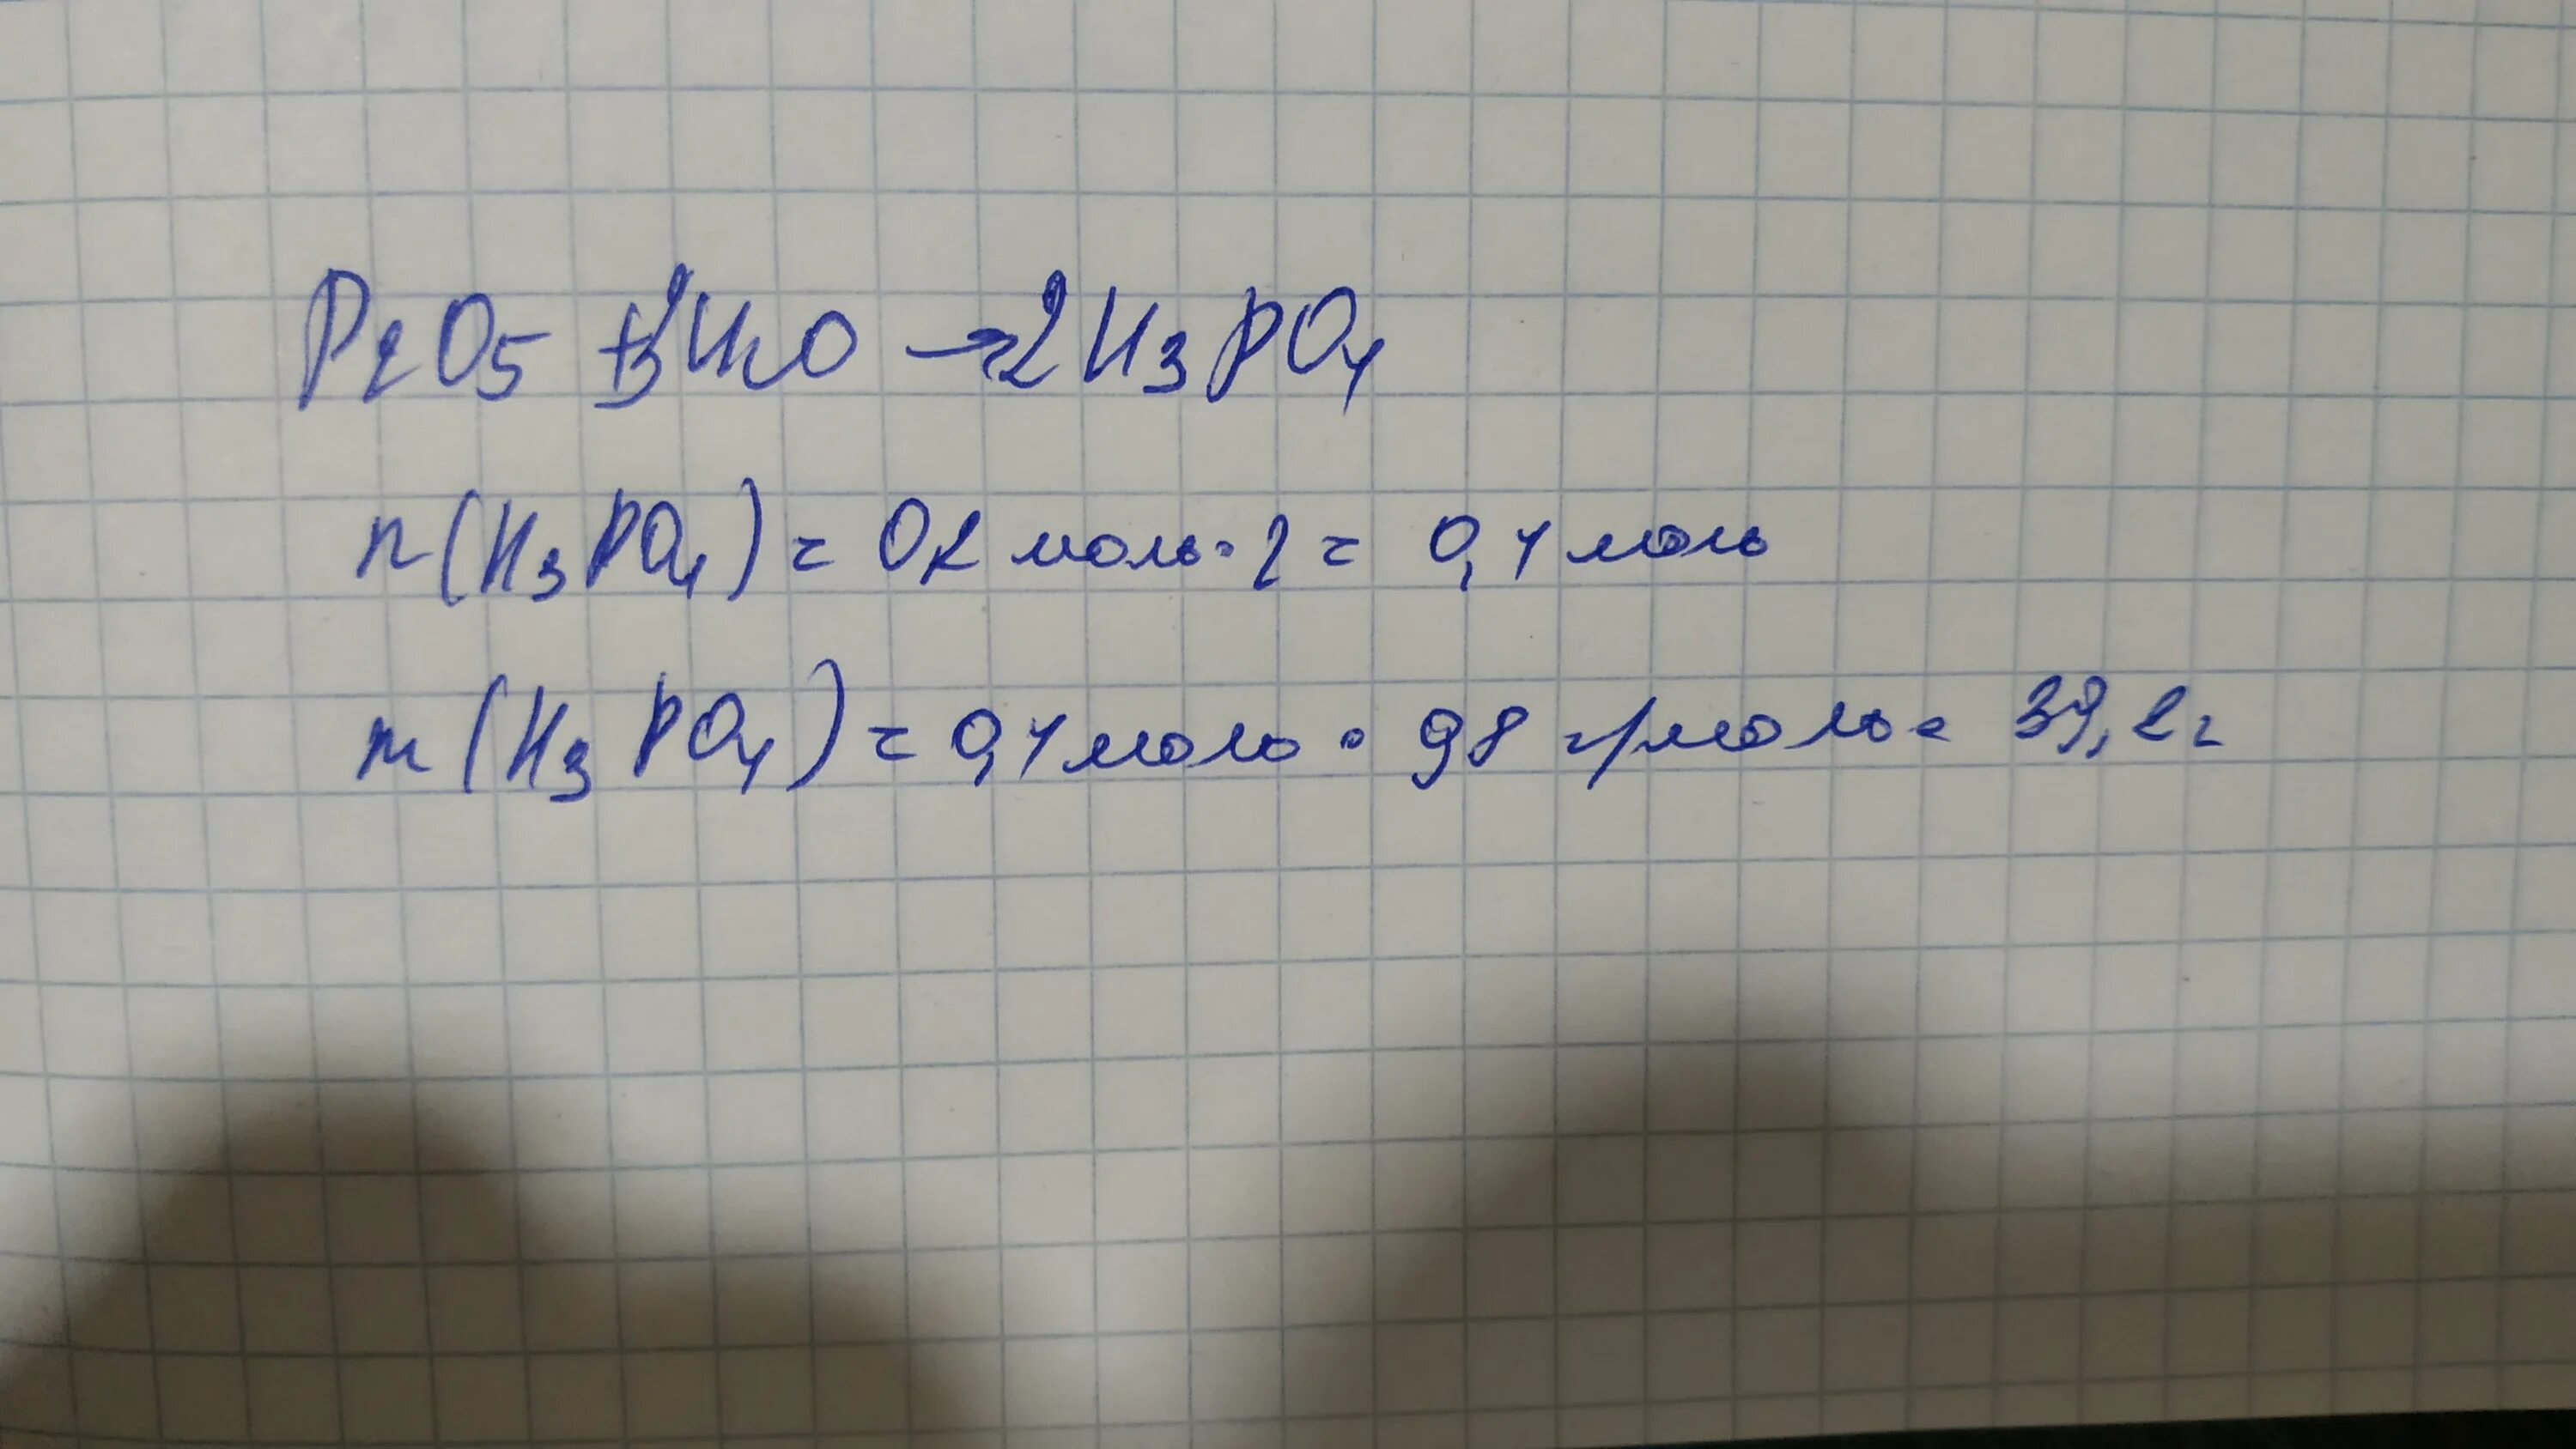 P2O5 + 3H2O → 2H3PO4
n(H3PO4) = 0,2 моль · 2 = 0,4 моль
m(H3PO4) = 0,4 моль · 98 г/моль = 39,2 г